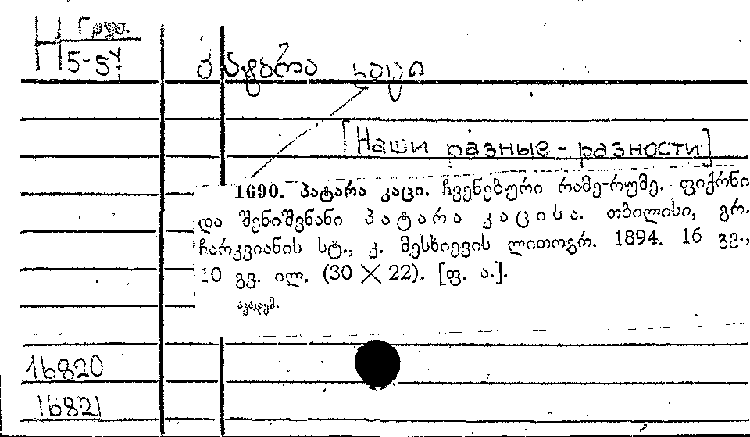 Н Груз.
5-57
პატარა კაცი
[Наши разные-разности]
1690. პატარა კაცი. ჩვენებური რამე-რუმე. ფიქრნი
და შენიშვნანი პატარა კაცისა. თბილისი, გრ.
ჩარკვიანის სტ., კ. მესხიევის ლითოგრ. 1894. 16 გვ.,
10 გვ. ილ. (30 × 22). [ფ. ა.].
აკადემ.
16820
16821